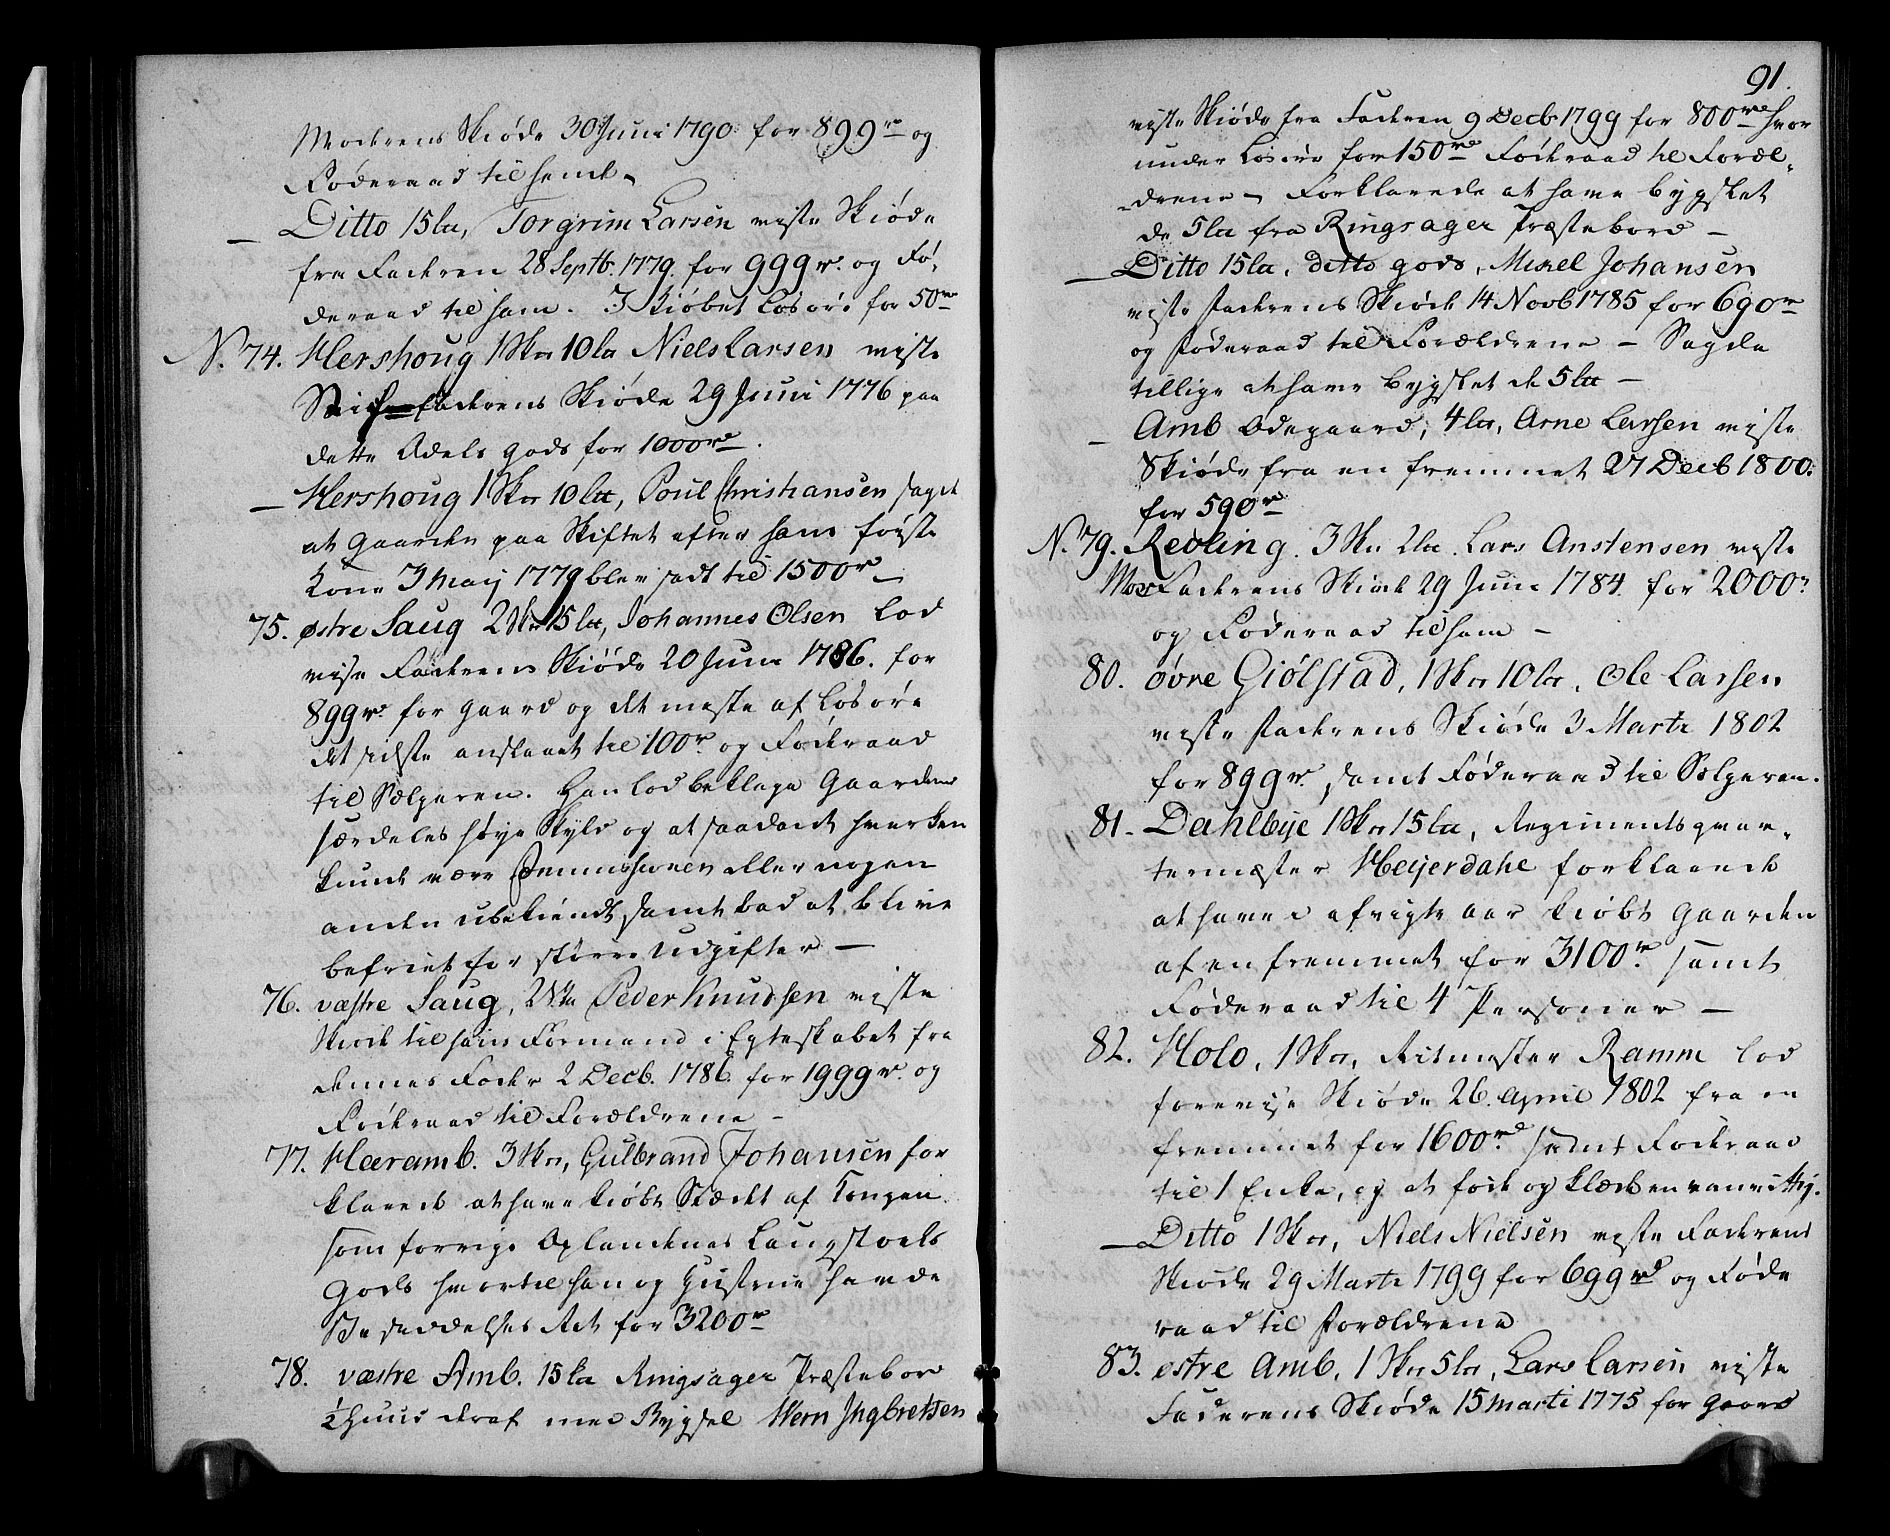 Moderens Skiøde 30 Juni 1790 for 899 rd og
Føderaad til hende.
— Ditto 15 lu, Torgrim Larsen viste Skiøde
fra Faderen 28 Septb. 1779. for 999 rd. og Fø-
deraad til ham. I Kiøbet Løsøre for 50 rd
N. 74. Hershoug 1 Skr 10 lu Niels Larsen viste
Stiffaderens Skiøde 29 Juni 1776 paa
dette Adels gods for 1000 rd.
— Hershoug 1 Skr 10 lu, Poul Christiansen sagde
at Gaarden paa Skiftet efter hans første
Kone 3 Maij 1779 blev sadt til 1500 rd
75. østre Saug 2 Skr 15 lu, Johannes Olsen lod
vise Faderens Skiøde 20 Juni 1786. for
899 rd. for gaard og det meste af Løsøre
det sidste anslaaet til 100 rd. og Føderaad
til Sælgeren. Han lod beklage Gaardens
særdeles høye Skyld og at saadant hverken
kunde være Commissionen eller nogen
anden ubekiendt, samt bad at blive
befriet for større Udgifter —
76. væstre Saug, 2 Skr Peder Knudsen viste
Skiøde til hans Formand i Egteskabet fra
dennes Fader 2 Decb. 1786. for 1999 rd. og
Føderaad til Forældrene —
77. Haaramb. 3 Skr, Gulbrand Johansen for
klarede at have kiøbt Stædet af Kongen
som forrige Oplandenes Laugstoels
Gods hvortil han og Hustrue havde
Besiddelses Ret for 3200 rd
78. væstre Amb. 15 lu Ringsager Præstebor
½ Huus deraf med Bygsel Iver Ingbretsen
91.
viste Skiøde fra Faderen 9 Decb 1799 for 800 rd hvor
under Løsøre for 150 rd Føderaad til Foræl-
drene — Forklarede at have bygslet
de 5 lu fra Ringsager Præstebord —
— Ditto 15 lu, ditto gods, Mikel Johansen
viste Faderens Skiøde 14 Novb 1785 for 690 rd
og Føderaad til Forældrene — Sagde
tillige at have bygslet de 5 lu —
— Amb Ødegaard, 4 lu, Arne Larsen viste
Skiøde fra en fremmet 27 Decb 1800.
for 590 rd
N. 79. Redling. 3 Skr 2 lu. Lars Anstensen viste
MorFaderens Skiøde 29 Juni 1784. for 2000 rd
og Føderaad til ham —
80. øvre Giølstad, 1 Skr 10 lu, Ole Larsen
viste Faderens Skiøde 3 Marti 1802
for 899 rd. samt Føderaad til Sælgeren.
81. Dahlbye 1 Skr 15 lu, Regimentsqvar-
termæster Heyerdahl forklarede
at have i afvigte aar kiøbt Gaarden
af en fremmet for 3100 rd. samt
Føderaad til 4 Personer —
82. Holo, 1 Skr, Ritmester Ramm lod
forevise Skiøde 26. april 1802 fra en
fremmet for 1600 rd samt Føderaad
til 1 Enke, og at føde og klæde en
— Ditto 1 Skr, Niels Nielsen viste Faderens
Skiøde 29 Marti 1799 for 699 rd og Føde
raad til Forældrene
83. østre Amb, 1 Skr 5 lu, Lars Larsen viste
Faderens Skiøde 15 marti 1775 for gaard